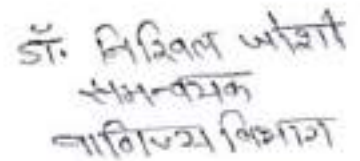 डॉ. निखिल जोशी
समन्वयक
वाणिज्य विभाग